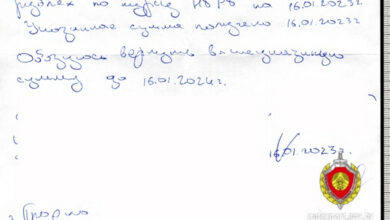 рублях по курсу НБРБ на 16.01.2023г.
Указанная сумма получена 16.01.2023г.
Обязуюсь вернуть вышеуказанную
сумму до 16.01.2024г.
16.01.2023г.